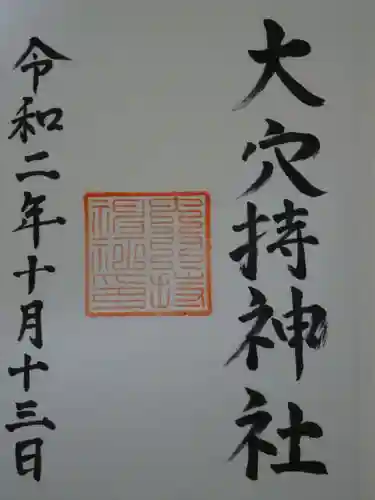 大穴持神社
令和二年十月十三日